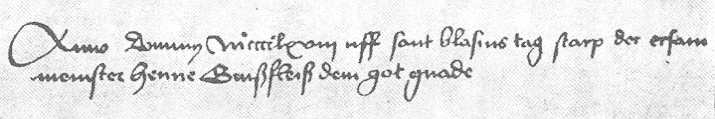 Anno dominy Mcccclxviii uff sant blasius tag starp der ersam
meinster Henne Ginßfleiß dem got gnade